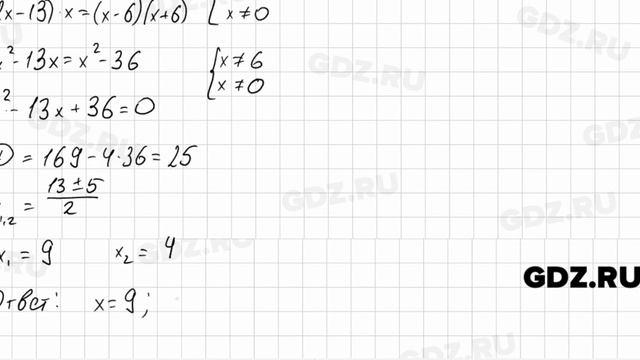 (x-13)·x=(x-6)(x+6) { x≠0
²-13x=x²-36 { x≠6
x≠0
²-13x+36=0
D=169-4·36=25
1,2 = 13±5
2
x₁=9 x₂=4
Ответ: x=9;
GDZ.RU